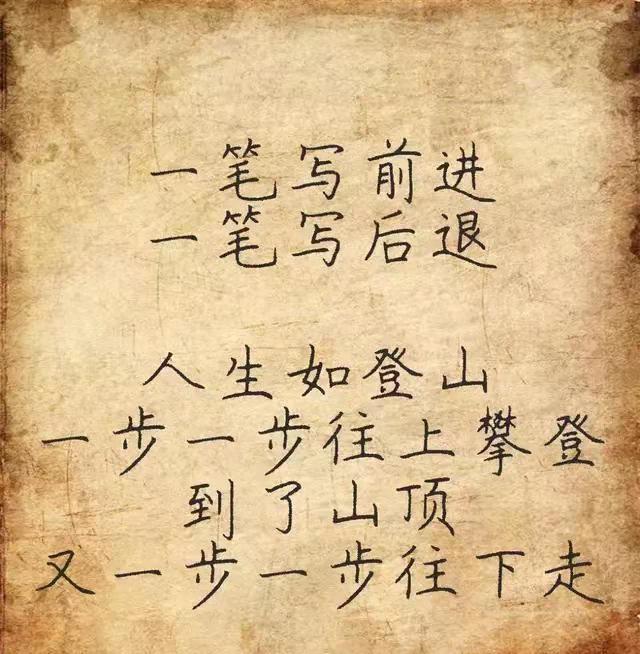 一笔写前进
一笔写后退
人生如登山
一步一步往上攀登
到了山顶
又一步一步往下走